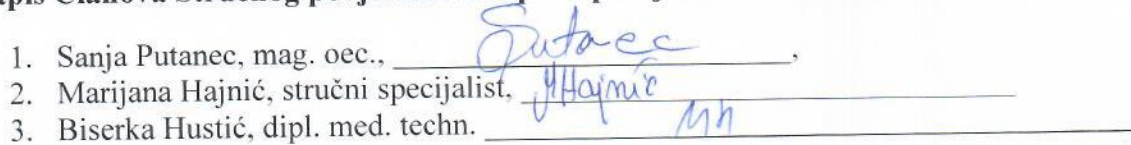 1. Sanja Putanec, mag. oec., Putanec,
2. Marijana Hajnić, stručni specijalist, MHajnić
3. Biserka Hustić, dipl. med. techn.